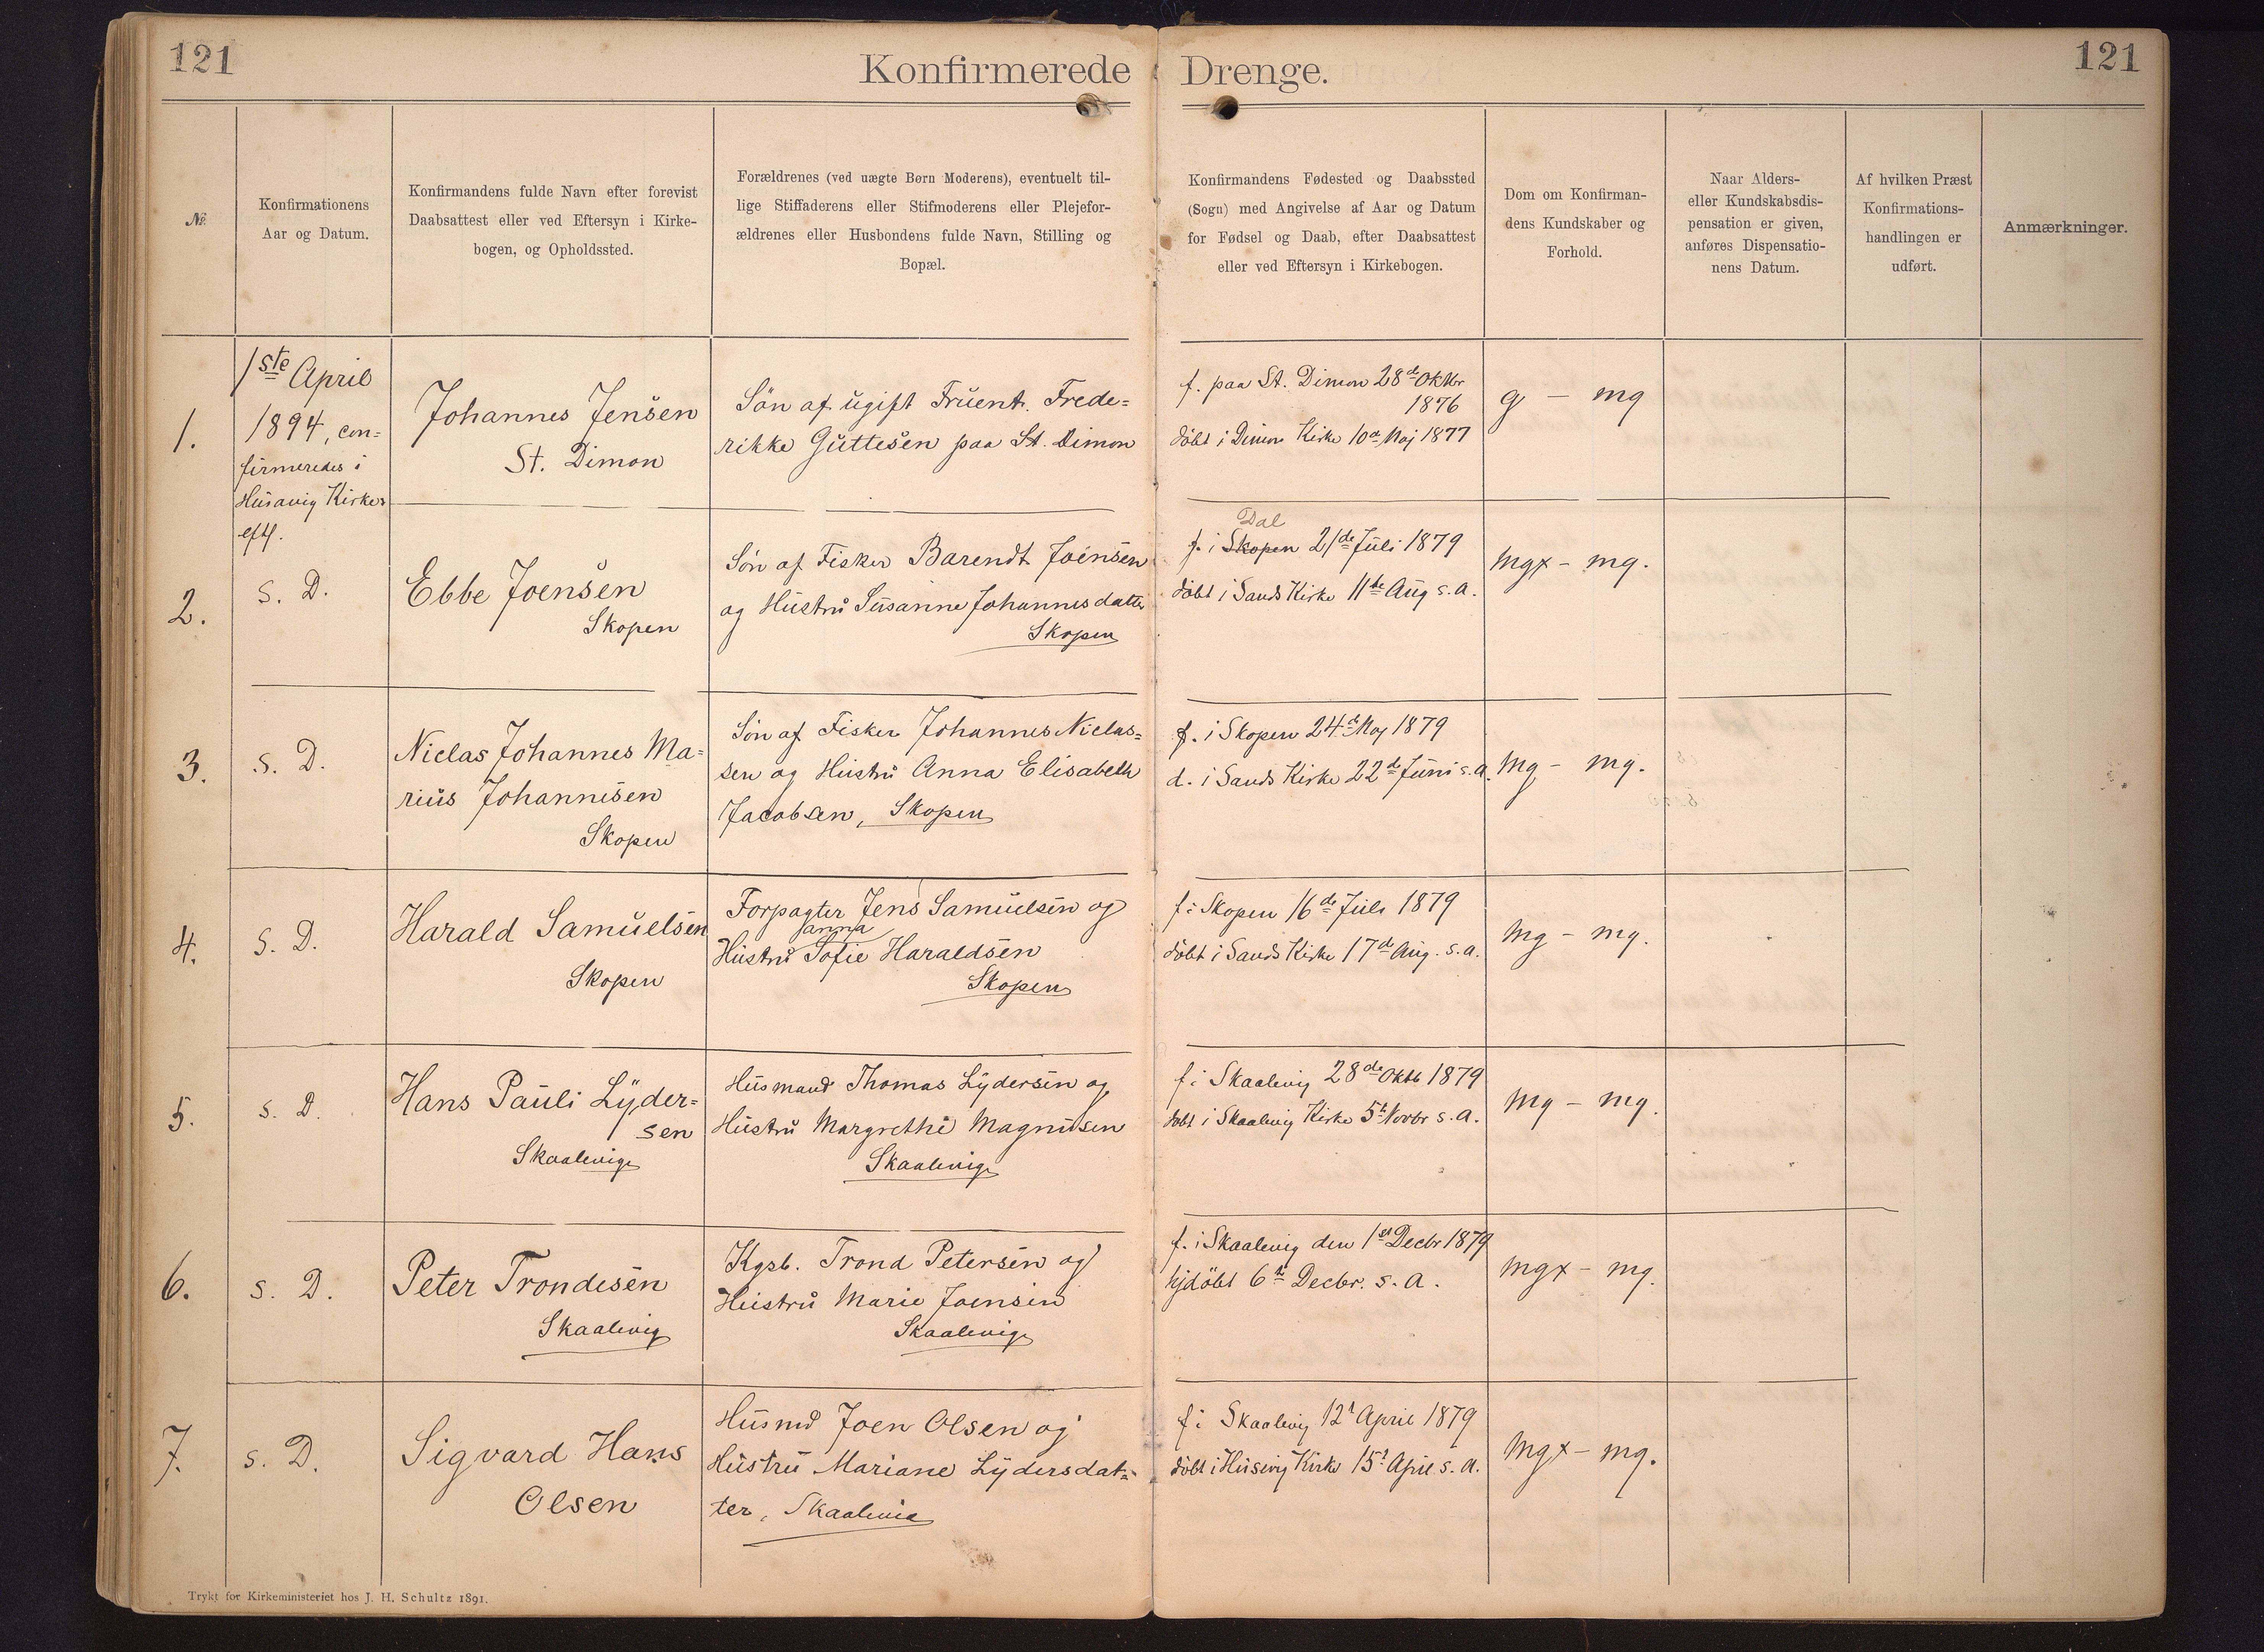 121
Konfirmerede Drenge.
121
№
Konfirmationens
Aar og Datum.
Konfirmandens fulde Navn efter forevist
Daabsattest eller ved Eftersyn i Kirke-
bogen, og Opholdssted.
Forældrenes (ved uægte Børn Moderens), eventuelt til-
lige Stiffaderens eller Stifmoderens eller Plejefor-
ældrenes eller Husbondens fulde Navn, Stilling og
Bopæl.
Konfirmandens Fødested og Daabssted
(Sogn) med Angivelse af Aar og Datum
for Fødsel og Daab, efter Daabsattest
eller ved Eftersyn i Kirkebogen.
Dom om Konfirman-
dens Kundskaber og
Forhold.
Naar Alders-
eller Kundskabsdis-
pensation er given,
anføres Dispensatio-
nens Datum.
Af hvilken Præst
Konfirmations-
handlingen er
udført.
Anmærkninger.
1.
1ste April
1894, con=
firmeredes i
Husavig Kirke
Johannes Jensen
St. Dimon
Sön af ugift Fruent. Frede=
rikke Guttesen paa St. Dimon
f. paa St. Dimon 28de Oktbr
1876
döbt i Dimon Kirke 10de Maj 1877
g – mg
2.
s. D.
Ebbe Joensen
Skopen
Sön af Fisker Barendt Joensen
og Hustru Susanne Johannesdatter
Skopen
Dal
f. i Skopen 21de Juli 1879
döbt i Sands Kirke 11te Aug s. a.
mgx – mg.
3.
s. D.
Niclas Johannes Ma=
rius Johannesen
Skopen
Sön af Fisker Johannes Niclas=
sen og Hustru Anna Elisabeth
Jacobsen, Skopen
f. i Skopen 24de Maj 1879
d. i Sands Kirke 22de Juni s. a.
mg – mg.
4.
s. D.
Harald Samuelsen
Skopen
Forpagter Jens Samuelsen og
anna
Hustru Sofie Haraldsen
Skopen
f. i Skopen 16de Juli 1879
döbt i Sands Kirke 17de Aug. s. a.
mg – mg.
5.
s. D.
Hans Pauli Lyder=
sen
Skaalevig
Husmand Thomas Lydersen og
Hustru Margrethe Magnusen
Skaalevig
f. i Skaalevig 28de Oktb 1879
döbt i Skaalevig Kirke 5t Novbr s. a.
mg – mg.
6.
s. D.
Peter Trondesen
Skaalevig
Kgsb. Trond Petersen og
Hustru Marie Joensen
Skaalevig
f. i Skaalevig den 1st Decbr 1879
hjdöbt 6t Decbr. s. a.
mgx – mg.
7.
s. D.
Sigvard Hans
Olsen
Husmd Joen Olsen og
Hustru Mariane Lydersdat=
ter, Skaalevig
f. i Skaalevig 12t April 1879
döbt i Husevig Kirke 15t April s. a.
mgx – mg.
Trykt for Kirkeministeriet hos J. H. Schultz 1891.